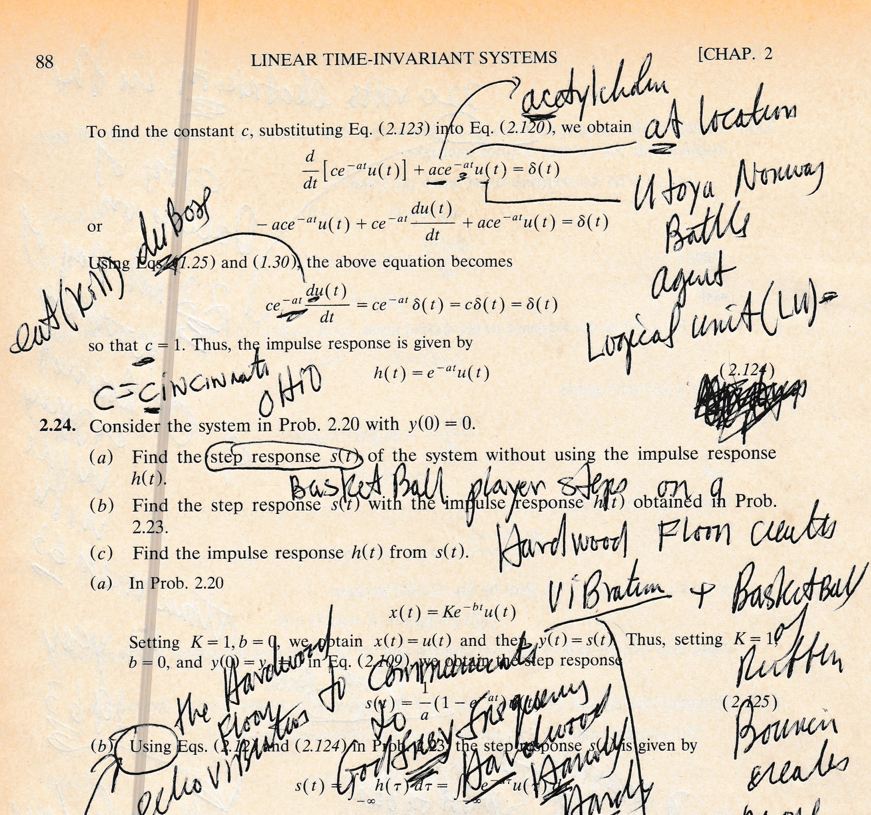 88 LINEAR TIME-INVARIANT SYSTEMS [CHAP. 2
acetylcholin
To find the constant c, substituting Eq. (2.123) into Eq. (2.120), we obtain
at location
d/dt [ce^{-at}u(t)] + ace^{-at}u(t) = δ(t)
Utoya Norway
or -ace^{-at}u(t) + ce^{-at} du(t)/dt + ace^{-at}u(t) = δ(t)
Battle
eat (Kill) du Boys
Using Eqs. (1.25) and (1.30), the above equation becomes
agent
ce^{-at} du(t)/dt = ce^{-at} δ(t) = cδ(t) = δ(t)
Logical unit (LU)=
so that c = 1. Thus, the impulse response is given by
h(t) = e^{-at}u(t) (2.124)
C=Cincinnati
OHiO
2.24. Consider the system in Prob. 2.20 with y(0) = 0.
(a) Find the step response s(t) of the system without using the impulse response
h(t).
BasketBall player steps on a
(b) Find the step response s(t) with the impulse response h(t) obtained in Prob.
2.23.
Hardwood Floor creates
(c) Find the impulse response h(t) from s(t).
(a) In Prob. 2.20
ViBration + BasketBall
x(t) = Ke^{-bt}u(t)
of
Setting K = 1, b = 0, we obtain x(t) = u(t) and then y(t) = s(t). Thus, setting K = 1,
b = 0, and y(0) = in Eq. (2.109), we obtain the step response
Rubber
the Hardwood
Floor
echo Vibrations to
s(t) = 1/a (1 - e^{-at}) (2.125)
Bouncin
(b) Using Eqs. and (2.124) in Prob. 2.23, the step response s(t) is given by
Godfrey frequency
Hardwood
creates
Handy
s(t) = ∫_{-∞} h(τ) dτ =
Hardy
more